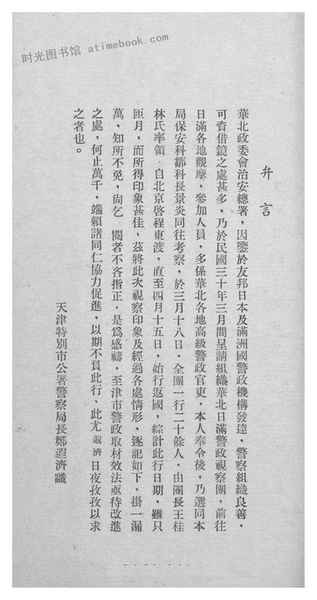 时光图书馆 atimebook.com
弁言
華北政委會治安總署，因鑒於友邦日本及滿洲國警政機構發達，警察組織良善，
可資借鏡之處甚多，乃於民國三十年三月間呈請組織華北日滿警政視察團，前往
日滿各地觀摩，參加人員，多係華北各地高級警政官吏，本人奉令後，乃選同本
局保安科鄒科長景炎同往考察，於三月十八日，全團一行二十餘人，由團長王桂
林氏率領，自北京啓程東渡，直至四月十五日，始行返國，綜計此行日期，雖只
匝月，而所得印象甚佳，茲將此次視察印象及經過各處情形，逐記如下，掛一漏
萬，知所不免，尙乞 閱者不吝指正，是爲感禱，至津市警政取材效法亟待改進
之處，何止萬千，端賴諸同仁協力促進，以期不負此行，此尤遐濟日夜孜孜以求
之者也。
天津特別市公署警察局長鄭遐濟識